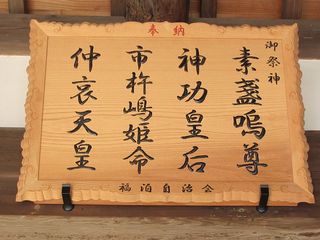 奉納
御祭神
素盞嗚尊
神功皇后
市杵嶋姫命
仲哀天皇
福泊自治会